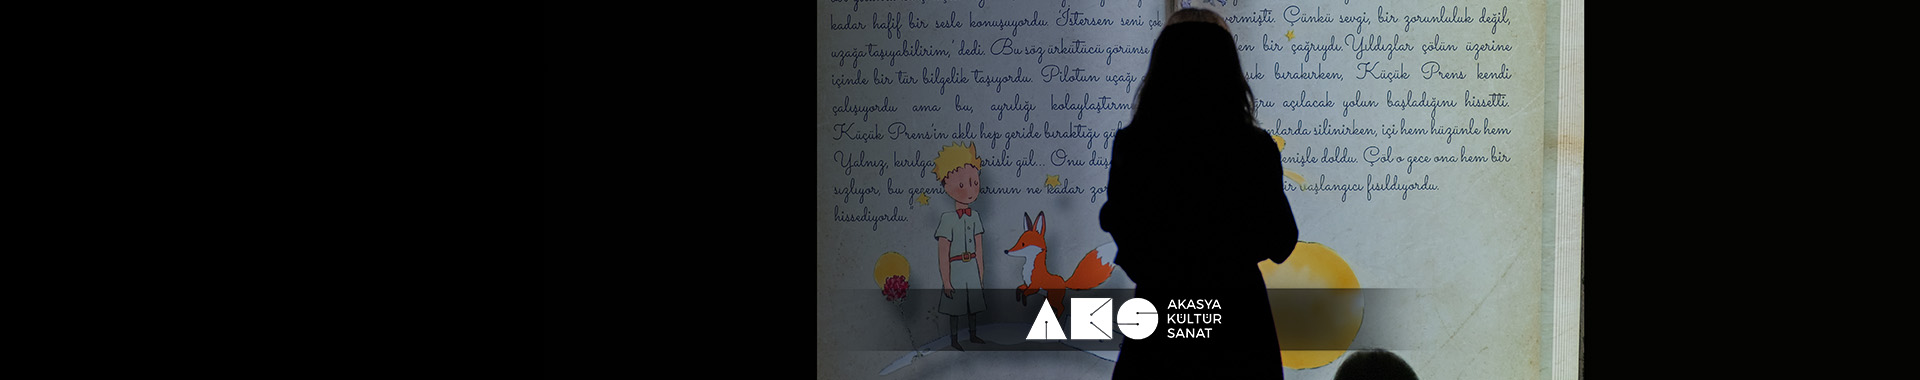 kadar hafif bir sesle konuşuyordu. 'İstersen seni çok
uzağa taşıyabilirim,' dedi. Bu söz ürkütücü görünse
içinde bir tür bilgelik taşıyordu. Pilotun uçağı
çalışıyordu ama bu, ayrılığı
Küçük Prens'in aklı hep geride bıraktığı
Yalnız, Onu
sızlıyor, bu ne kadar
hissediyordu.
vermişti. Çünkü sevgi, bir zorunluluk değil,
bir çağrıydı. Yıldızlar çölün üzerine
bırakırken, Küçük Prens kendi
açılacak yolun başladığını hissetti.
silinirken, içi hem hüzünle hem
doldu. Çöl o gece ona hem bir
vaşlangıcı fısıldıyordu.
AKS
AKASYA
KÜLTÜR
SANAT